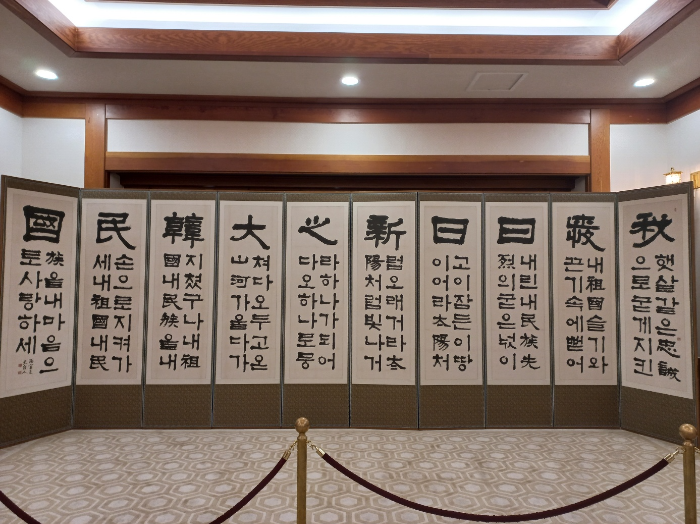 秋
햇살같은忠誠
으로굳게지킨
내祖國슬기와
끈기속에뻗어
日
내린내民族先
烈의굳은넋이
日
고이잠든이땅
이어라太陽처
新
럼오래거라太
陽처럼빛나거
之
라하나가되어
다오하나로뭉
大
쳐다오두고온
山河가을다가
韓
지쳤구나내祖
國내民族을내
民
손으로지켜가
세내祖國내民
國
族을내마음으
로사랑하세